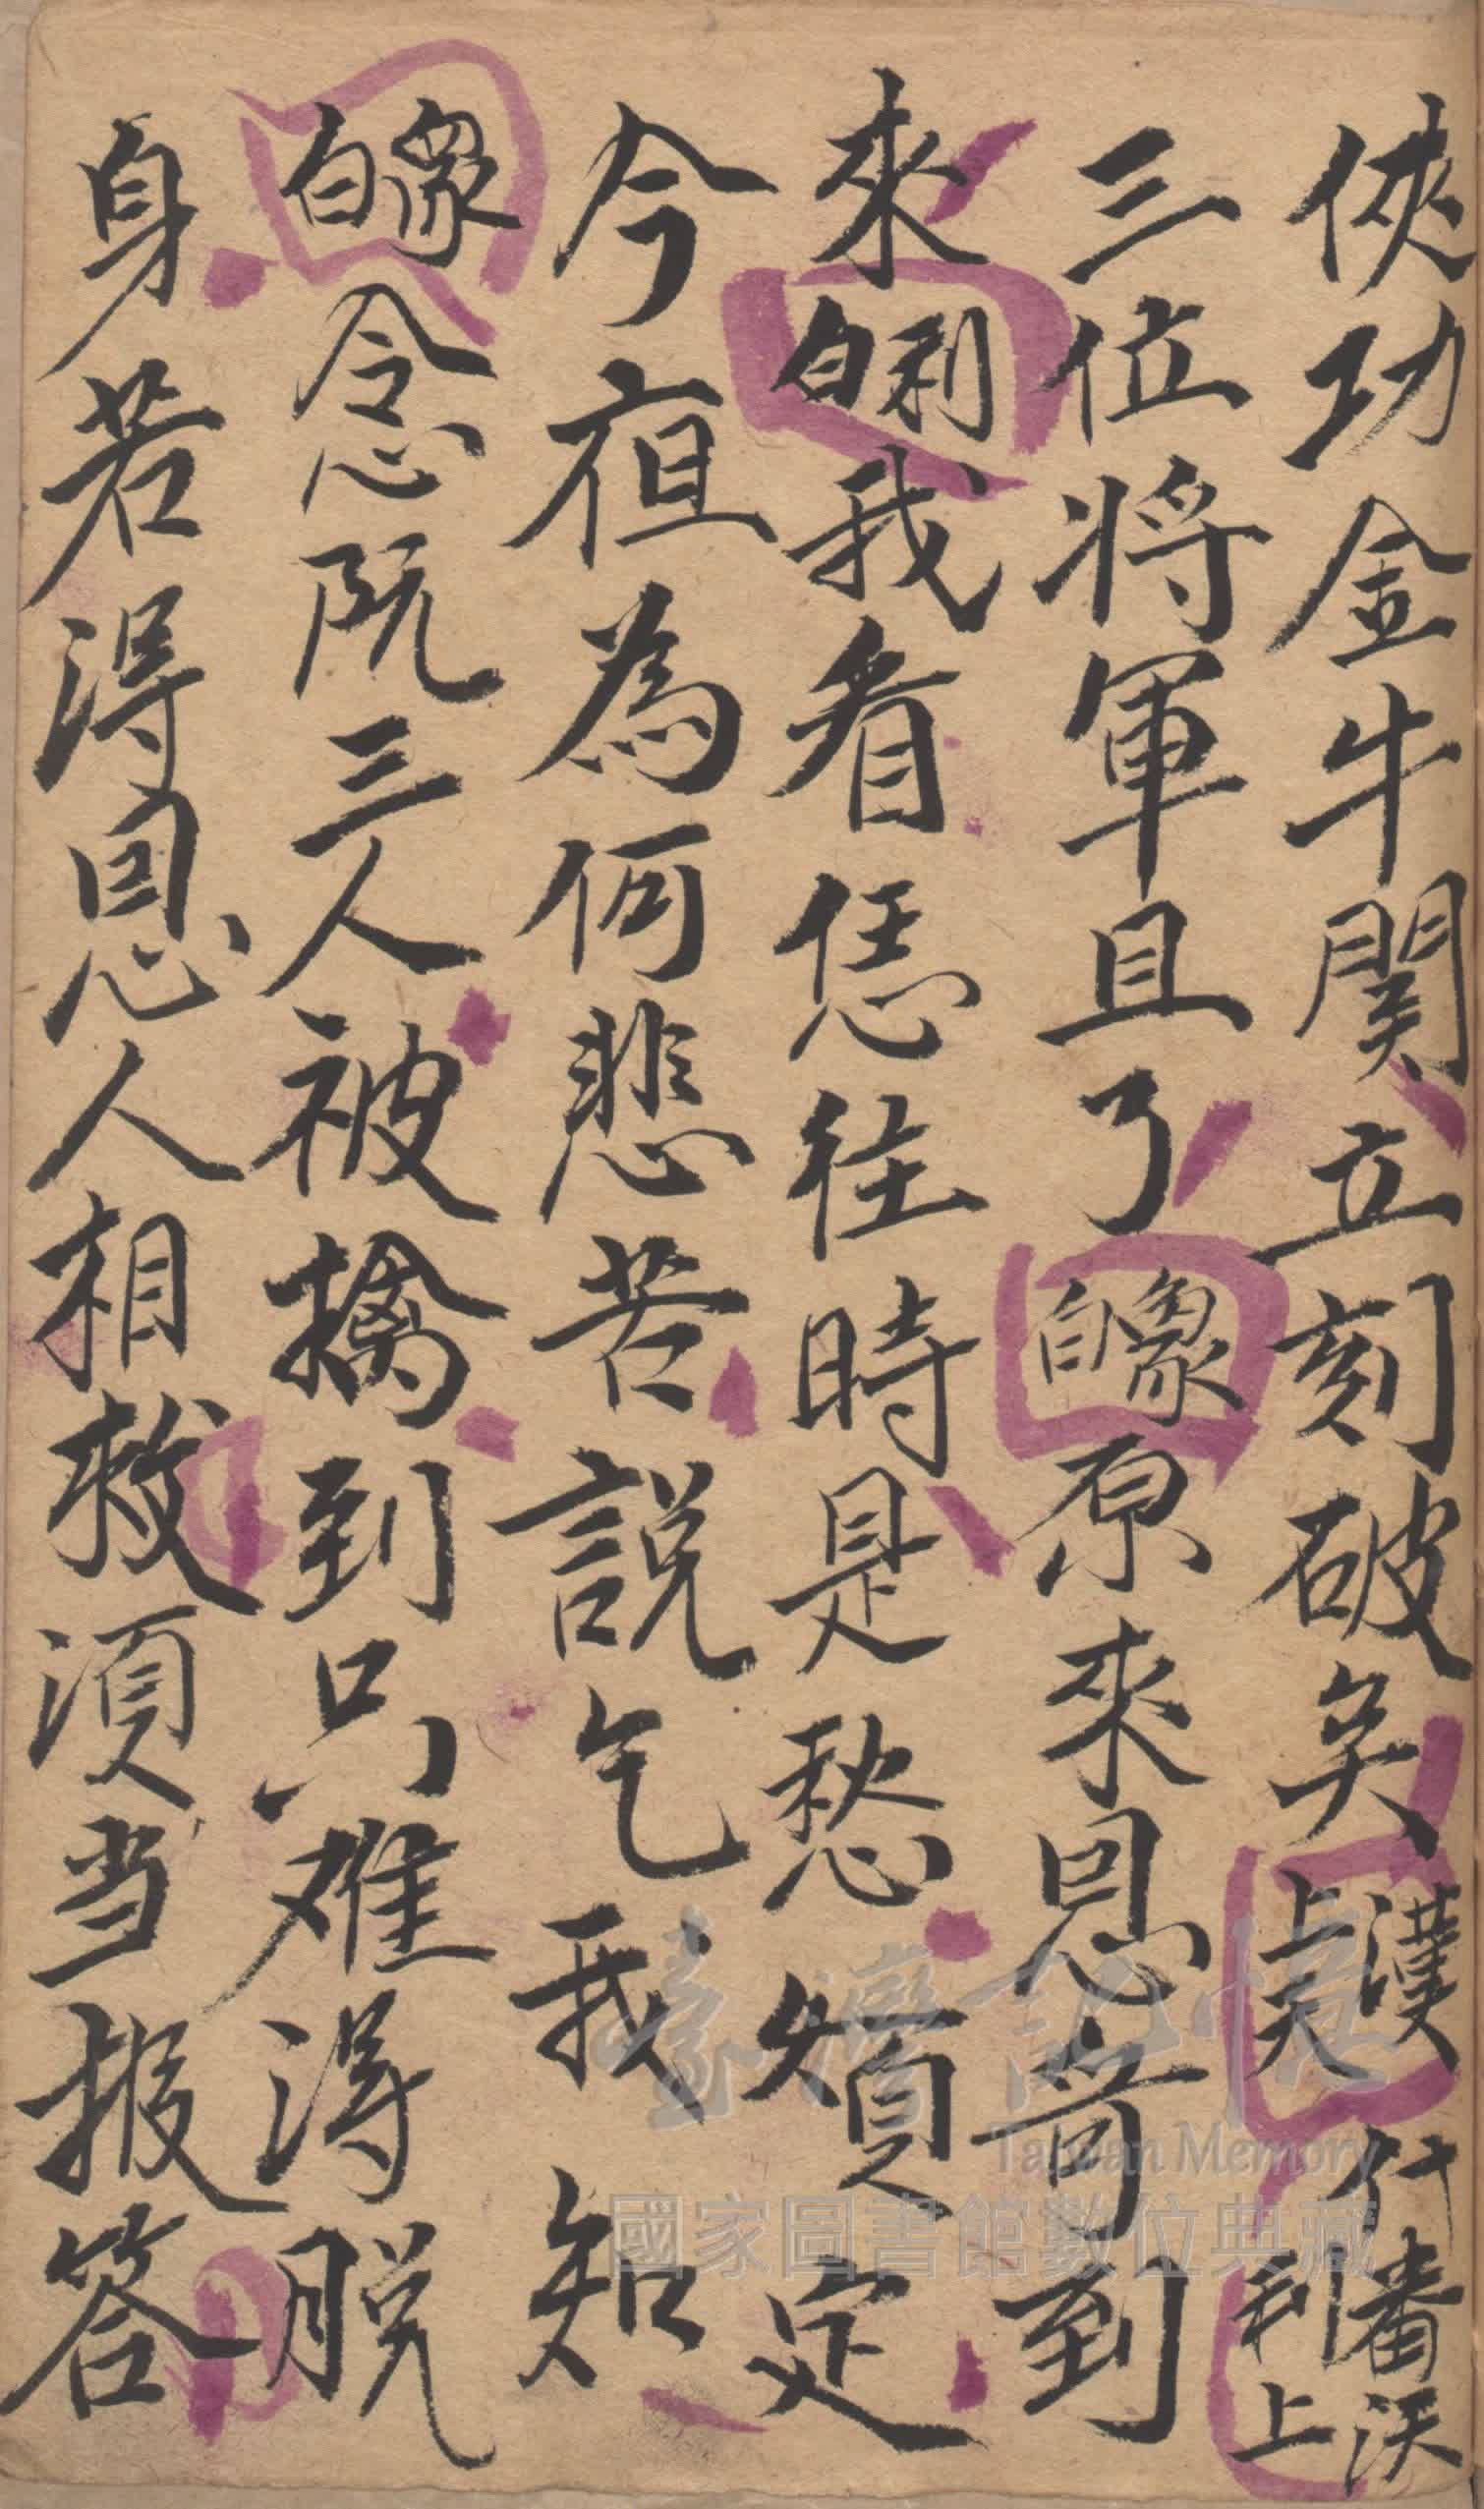 俠功金牛関立刻破矣漢上天什番沃利上
三位将軍且了象白原來恩哥到
來利白我看恁往時是愁煩定
今夜為何悲苦説乞我知
象白念阮三人被擒到只难得脱
身若得恩人相救須当报答
臺灣記憶
Taiwan Memory
國家圖書館數位典藏